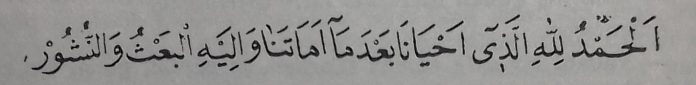 اَلْحَمْدُ لِلّٰهِ الَّذِٓى اَحْيَانَا بَعْدَ مَٓا اَمَاتَنَا وَاِلَيْهِ الْبَعْثُ وَالنُّشُوْرُ.